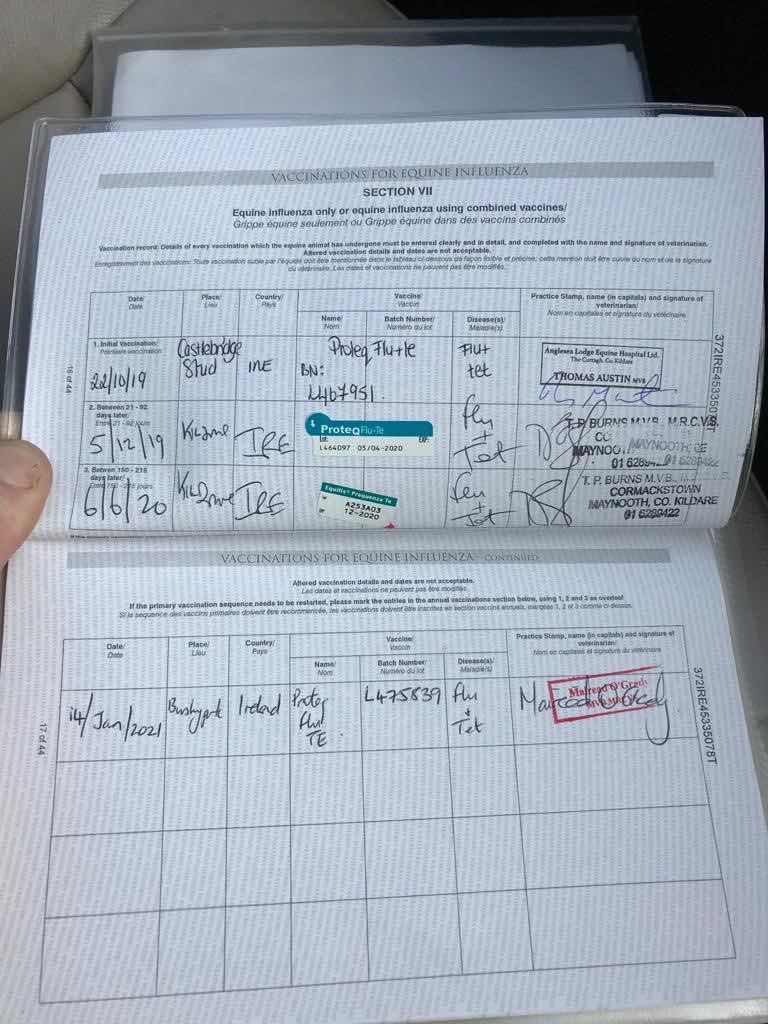 VACCINATIONS FOR EQUINE INFLUENZA
SECTION VII
Equine influenza only or equine influenza using combined vaccines/
Grippe équine seulement ou Grippe équine dans des vaccins combinés
Vaccination record: Details of every vaccination which the equine animal has undergone must be entered clearly and in detail, and completed with the name and signature of veterinarian.
Altered vaccination details and dates are not acceptable.
Enregistrement des vaccinations: Toute vaccination subie par l'équidé doit être mentionnée dans le tableau ci-dessous de façon lisible et précise; cette mention doit être suivie du nom et de la signature
du vétérinaire. Les dates et vaccinations ne peuvent pas être modifiés.
Date/ Place/ Country/ Vaccine/ Practice Stamp, name (in capitals) and signature of
Date Lieu Pays Vaccin veterinarian/
Name/ Batch Number/ Disease(s)/ Nom en capitales et signature du vétérinaire
Nom Numéro du lot Maladie(s)
1. Initial Vaccination/
Première vaccination
22/10/19 Castlebridge Stud IRE Proteq Flu+te Flu+ tet
BN: L467951
Anglesea Lodge Equine Hospital Ltd.
The Curragh, Co. Kildare
THOMAS AUSTIN MVB
2. Between 21 - 92
days later/
Entre 21 - 92 jours
5/12/19 IRE ProteqFlu-Te Flu + Tet
Lot: EXP:
L464097 05/04-2020
T.P. BURNS M.V.B., M.R.C.V.S.
MAYNOOTH
3. Between 150 - 215
days later/
Entre 150 - 215 jours
6/6/20 IRE Equilis Prequenza Te flu + Tet
A253A03
12-2020
T. P. BURNS M.V.B.
CORMACKSTOWN
MAYNOOTH, CO. KILDARE
01 6289422
16 of 44
372IRE45335078T
VACCINATIONS FOR EQUINE INFLUENZA - CONTINUED
Altered vaccination details and dates are not acceptable.
Les dates et vaccinations ne peuvent pas être modifiés.
If the primary vaccination sequence needs to be restarted, please mark the entries in the annual vaccinations section below, using 1, 2 and 3 as overleaf
Date/ Place/ Country/ Vaccine/ Practice Stamp, name (in capitals) and signature of
Date Lieu Pays Vaccin veterinarian/
Name/ Batch Number/ Disease(s)/ Nom en capitales et signature du vétérinaire
Nom Numéro du lot Maladie(s)
14/Jan/2021 Bushypark Ireland Proteq Flu TE L475839 Flu + Tet Mairead O'Grady
17 of 44
372IRE45335078T